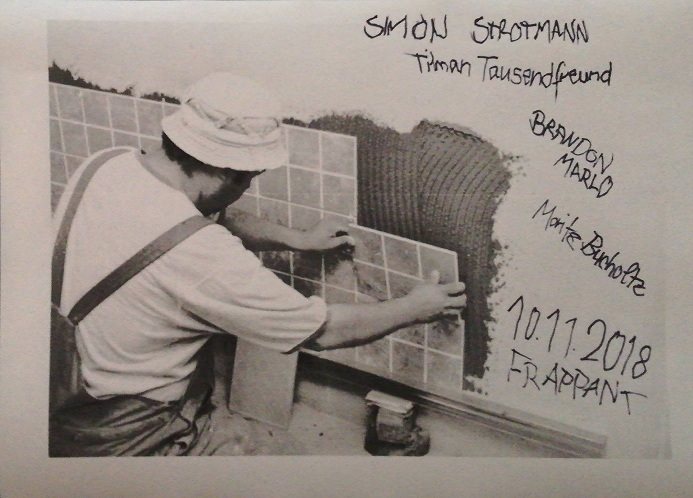 SIMON STROTMANN
Tilman Tausendfreund
BRANDON
MARLO
Moritz Bucholtz
10.11.2018
FRAPPANT